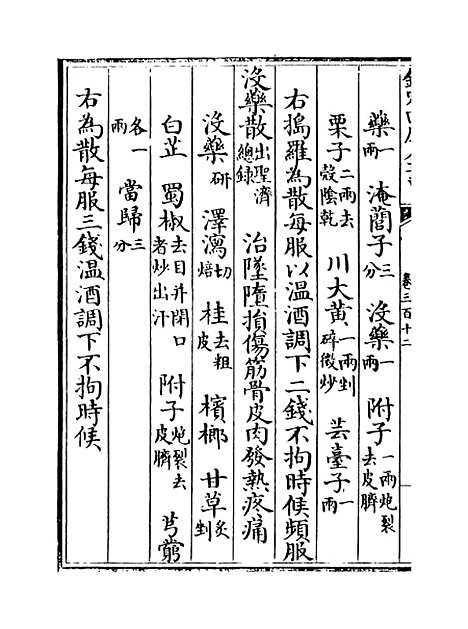 卷三百十二
藥一兩 淹䕡子三分 沒藥一兩 附子一兩炮裂去皮臍
栗子二兩去殼陰乾 川大黃一兩剉碎微炒 芸臺子一兩
右搗羅為散每服以温酒調下二錢不拘時候頻服
沒藥散出聖濟總錄 治墜墮損傷筋骨皮肉發熱疼痛
沒藥研 澤瀉切焙 桂去粗皮 檳榔 甘草炙剉
白芷 蜀椒去目并閉口者炒出汗 附子炮裂去皮臍 芎藭
各一兩 當歸三分
右為散每服三錢温酒調下不拘時候